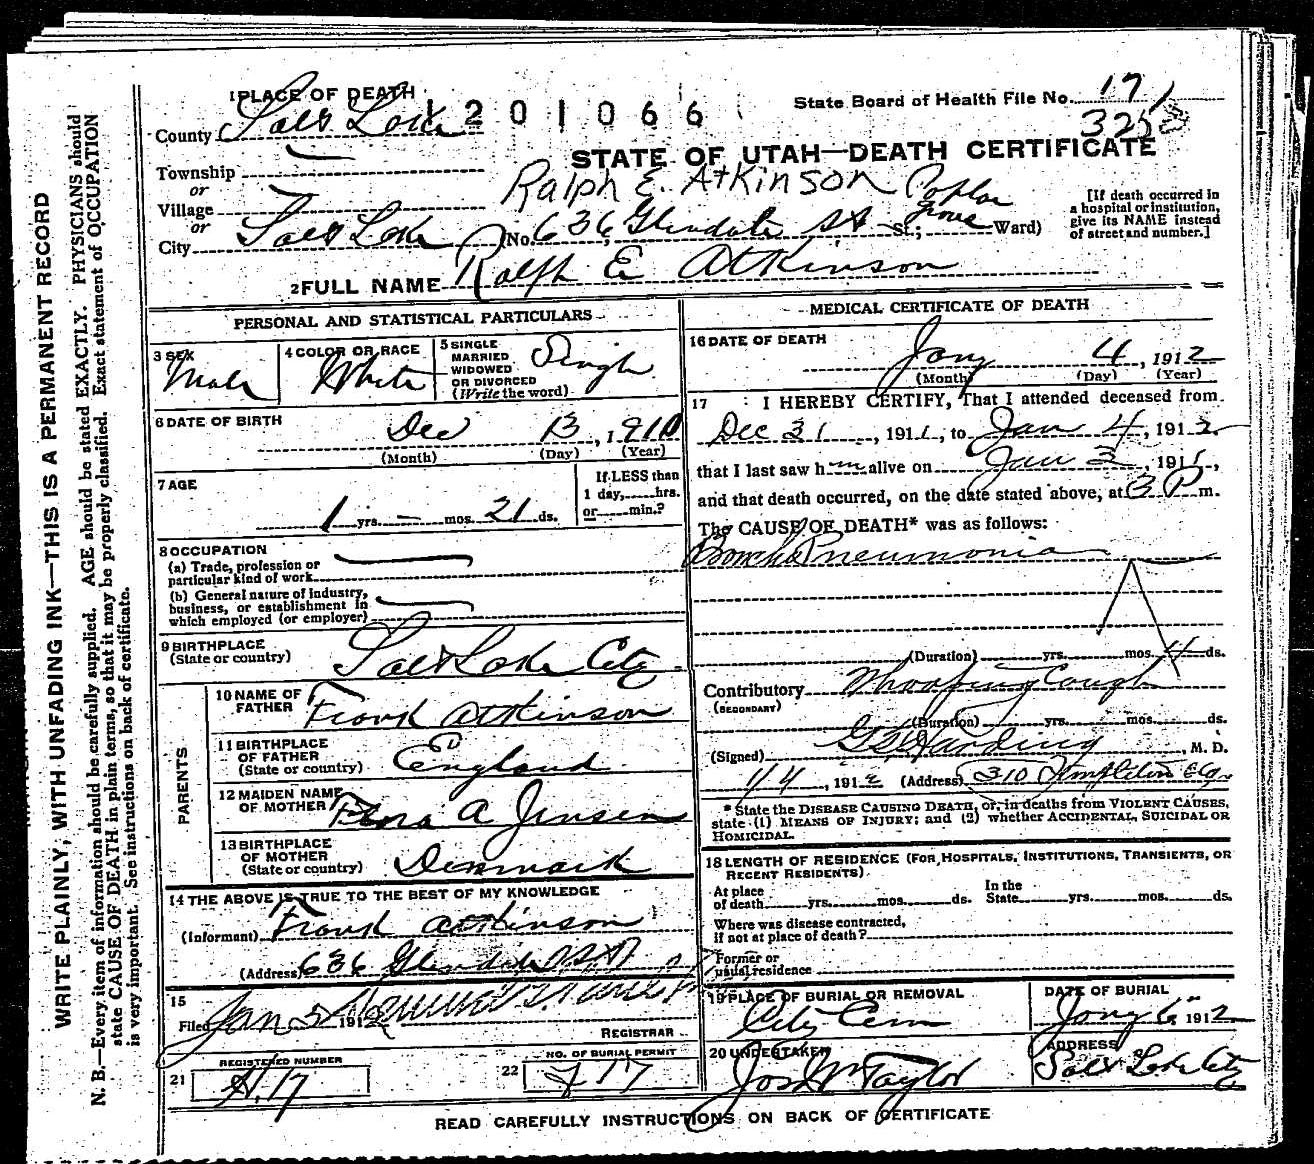 1 PLACE OF DEATH
1201066
State Board of Health File No. 17
325
County Salt Lake
STATE OF UTAH—DEATH CERTIFICATE
Township
or
Village
or
Ralph E. Atkinson
City Salt Lake (No. 636 Glendale St St.; Poplar Grove Ward)
[If death occurred in
a hospital or institution,
give its NAME instead
of street and number.]
2 FULL NAME Ralph E Atkinson
PERSONAL AND STATISTICAL PARTICULARS
3 SEX
Male
4 COLOR OR RACE
White
5 SINGLE
MARRIED
WIDOWED
OR DIVORCED
(Write the word)
Single
6 DATE OF BIRTH
Dec 13, 1910
(Month) (Day) (Year)
7 AGE
1 yrs. – mos. 21 ds.
If LESS than
1 day, hrs.
or min.?
8 OCCUPATION
(a) Trade, profession or
particular kind of work
(b) General nature of industry,
business, or establishment in
which employed (or employer)
9 BIRTHPLACE
(State or country)
Salt Lake City
PARENTS
10 NAME OF
FATHER
Frank Atkinson
11 BIRTHPLACE
OF FATHER
(State or country)
England
12 MAIDEN NAME
OF MOTHER
Flora A Jensen
13 BIRTHPLACE
OF MOTHER
(State or country)
Denmark
14 THE ABOVE IS TRUE TO THE BEST OF MY KNOWLEDGE
(Informant) Frank Atkinson
(Address) 636 Glendale St
15
Filed Jan 5 1912
REGISTRAR
REGISTERED NUMBER
21 H.17
NO. OF BURIAL PERMIT
22 717
MEDICAL CERTIFICATE OF DEATH
16 DATE OF DEATH
Jany 4, 1912
(Month) (Day) (Year)
17 I HEREBY CERTIFY, That I attended deceased from
Dec 31, 1911, to Jan 4, 1912
that I last saw him alive on Jan 3, 1911,
and that death occurred, on the date stated above, at 3 P m.
The CAUSE OF DEATH* was as follows:
Broncho Pneumonia
(Duration) yrs. mos. 4 ds.
Contributory Whooping Cough
(SECONDARY)
(Duration) yrs. mos. ds.
(Signed) Harding, M. D.
1/4, 1912 (Address) 310 Templeton Bldg
* State the DISEASE CAUSING DEATH, or, in deaths from VIOLENT CAUSES,
state (1) MEANS OF INJURY; and (2) whether ACCIDENTAL, SUICIDAL OR
HOMICIDAL.
18 LENGTH OF RESIDENCE (FOR HOSPITALS, INSTITUTIONS, TRANSIENTS, OR
RECENT RESIDENTS)
At place
of death yrs. mos. ds.
In the
State yrs. mos. ds.
Where was disease contracted,
if not at place of death?
Former or
usual residence
19 PLACE OF BURIAL OR REMOVAL
City Cem
DATE OF BURIAL
Jany 6, 1912
20 UNDERTAKER
Jos Wm Taylor
ADDRESS
Salt Lake City
READ CAREFULLY INSTRUCTIONS ON BACK OF CERTIFICATE
WRITE PLAINLY, WITH UNFADING INK—THIS IS A PERMANENT RECORD
N. B.—Every item of information should be carefully supplied. AGE should be stated EXACTLY. PHYSICIANS should
state CAUSE OF DEATH in plain terms, so that it may be properly classified. Exact statement of OCCUPATION
is very important. See instructions on back of certificate.